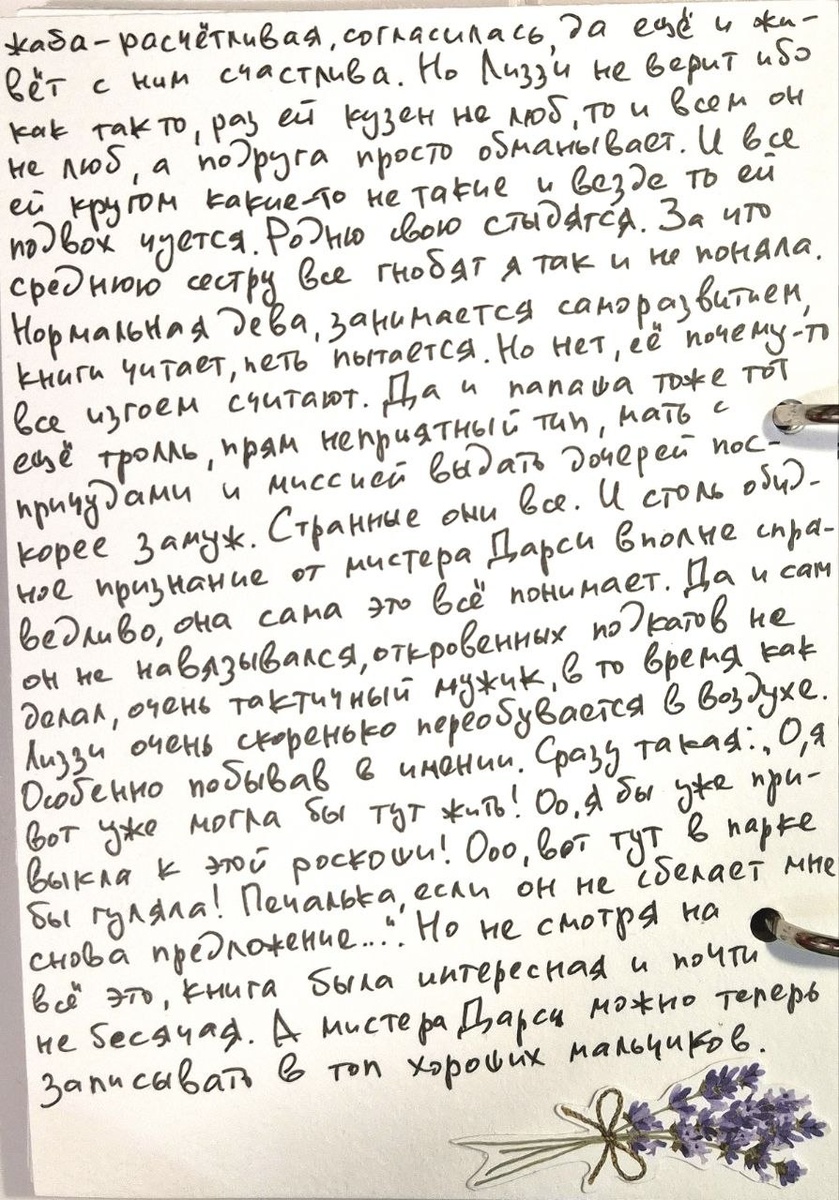 жаба-расчётливая, согласилась, да ещё и жи-
вёт с ним счастлива. Но Лиззи не верит ибо
как так то, раз ей кузен не люб, то и всем он
не люб, а подруга просто обманывает. И все
ей кругом какие-то не такие и везде то ей
подвох чуется. Родню свою стыдятся. За что
среднюю сестру все гнобят я так и не поняла.
Нормальная дева, занимается саморазвитием,
книги читает, петь пытается. Но нет, её почему-то
все изгоем считают. Да и папаша тоже тот
ещё тролль, прям неприятный тип, мать с
причудами и миссией выдать дочерей пос-
корее замуж. Странные они все. И столь обид-
ное признание от мистера Дарси вполне спра-
ведливо, она сама это всё понимает. Да и сам
он не навязывался, откровенных подкатов не
делал, очень тактичный мужик, в то время как
Лиззи очень скоренько переобувается в воздухе.
Особенно побывав в имении. Сразу такая: „О, я
вот уже могла бы тут жить! Оо, я бы уже при-
выкла к этой роскоши! Ооо, вот тут в парке
бы гуляла! Печалька, если он не сделает мне
снова предложение...“. Но не смотря на
всё это, книга была интересная и почти
не бесячая. А мистера Дарси можно теперь
записывать в топ хороших мальчиков.